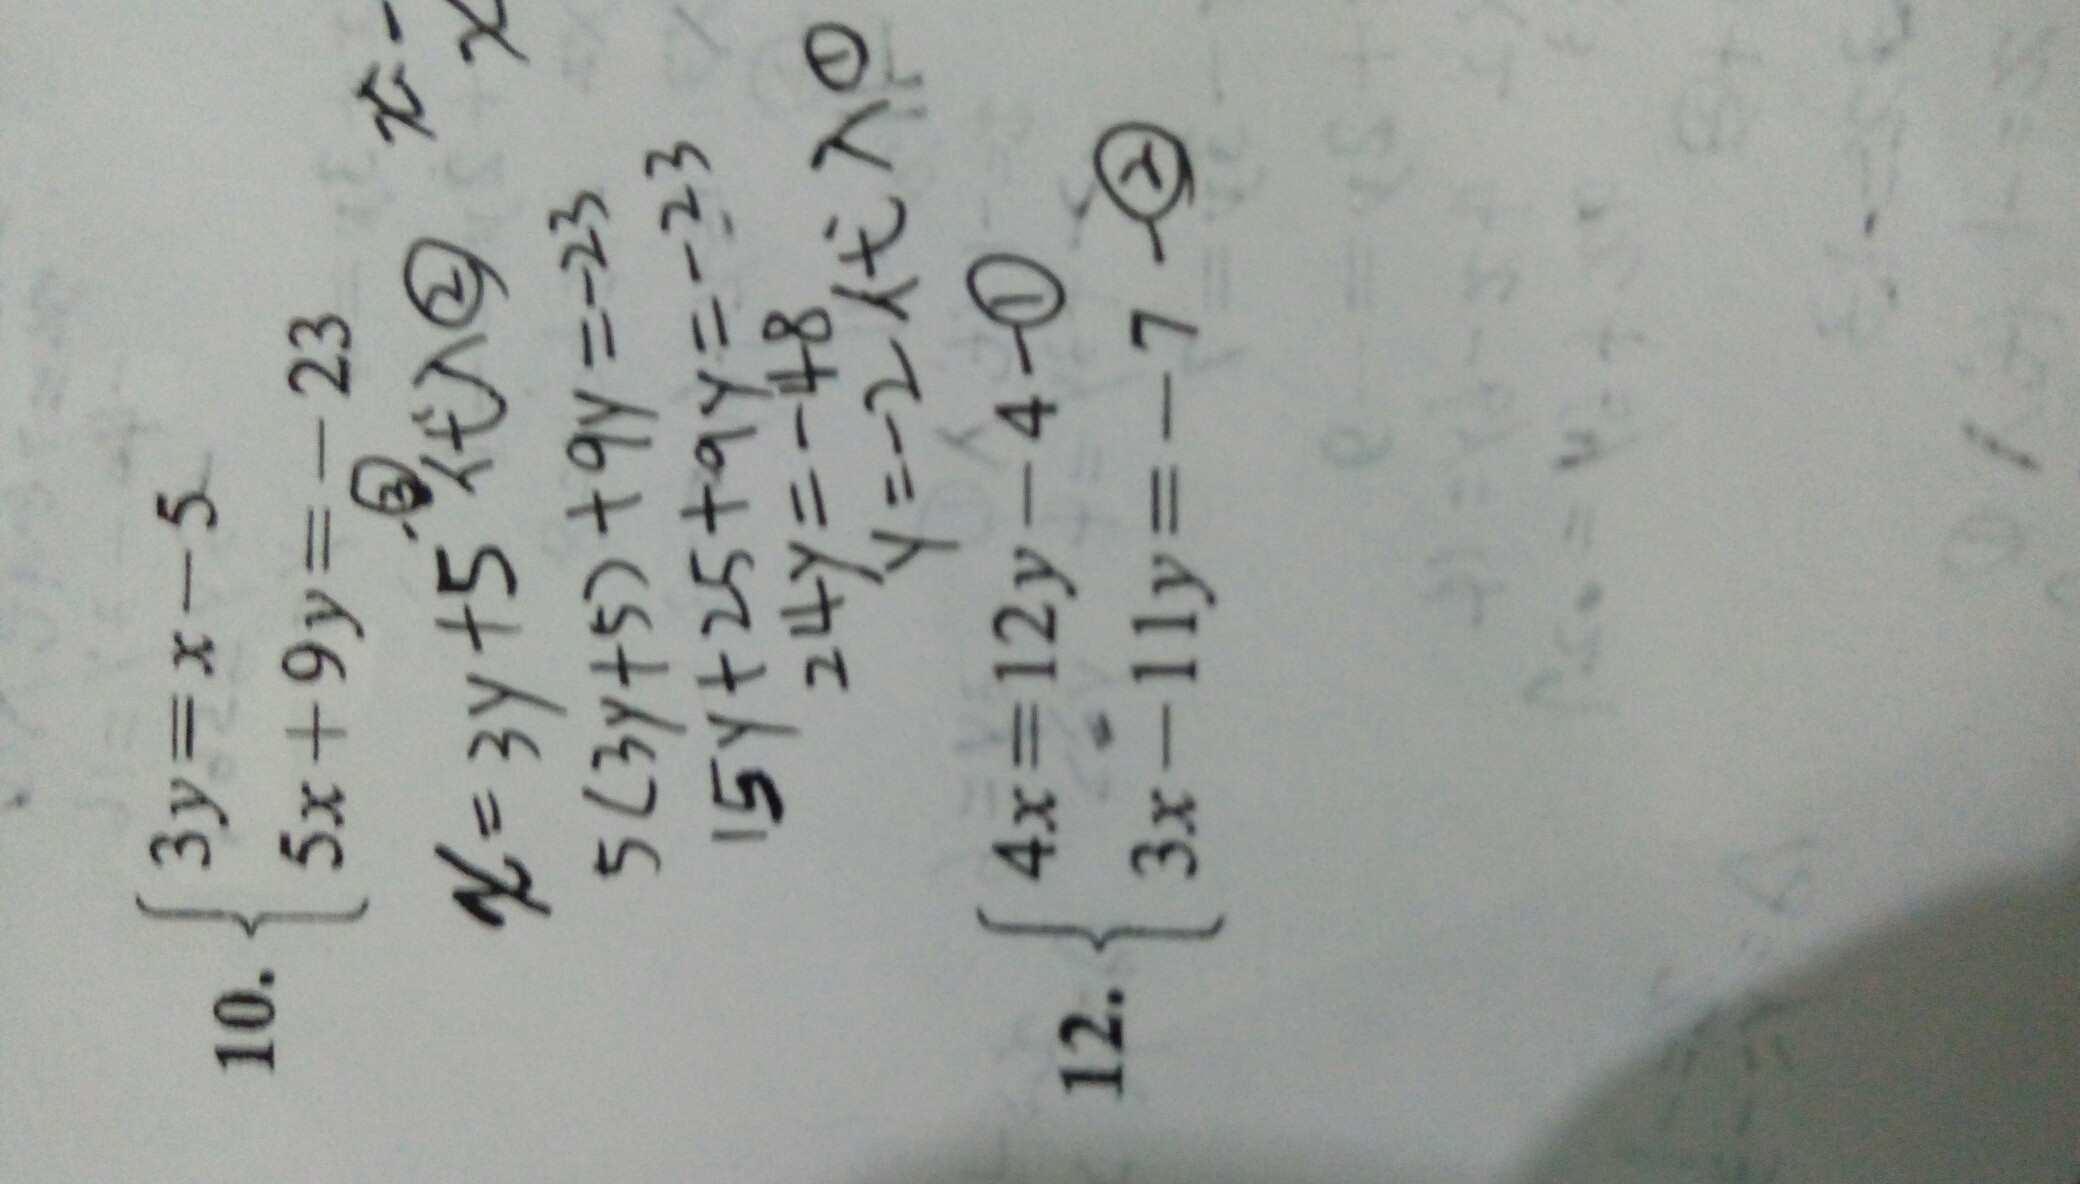 10. { 3y=x-5
5x+9y=-23
x=3y+5 -③ 代入②
5(3y+5)+9y=-23
15y+25+9y=-23
24y=-48
y=-2代入①
12. { 4x=12y-4-①
3x-11y=-7-②